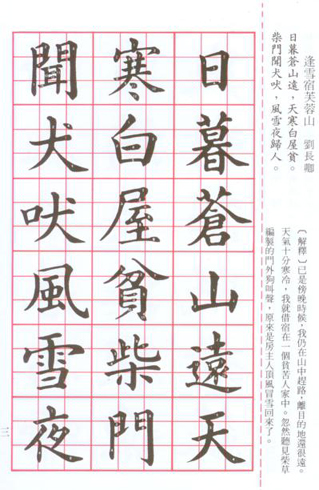 逢雪宿芙蓉山　劉長卿
日暮蒼山遠，天寒白屋貧。
柴門聞犬吠，風雪夜歸人。
（解釋）已是傍晚時候，我仍在山中趕路，離目的地還很遠。
天氣十分寒冷，我就借宿在一個貧苦人家中。忽然聽見柴草
編製的門外狗叫聲，原來是房主人頂風冒雪回來了。
日暮蒼山遠天
寒白屋貧柴門
聞犬吠風雪夜
三